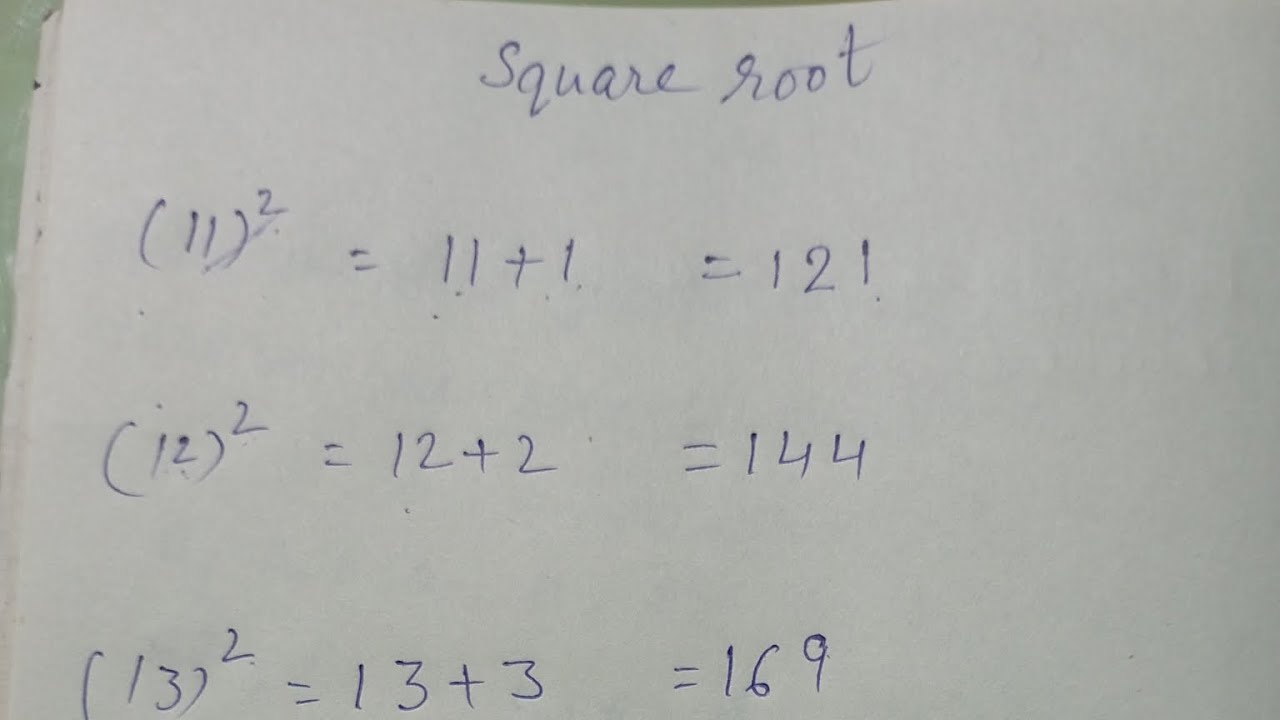 Square root
(11)² = 11+1 = 121
(12)² = 12+2 = 144
(13)² = 13+3 = 169